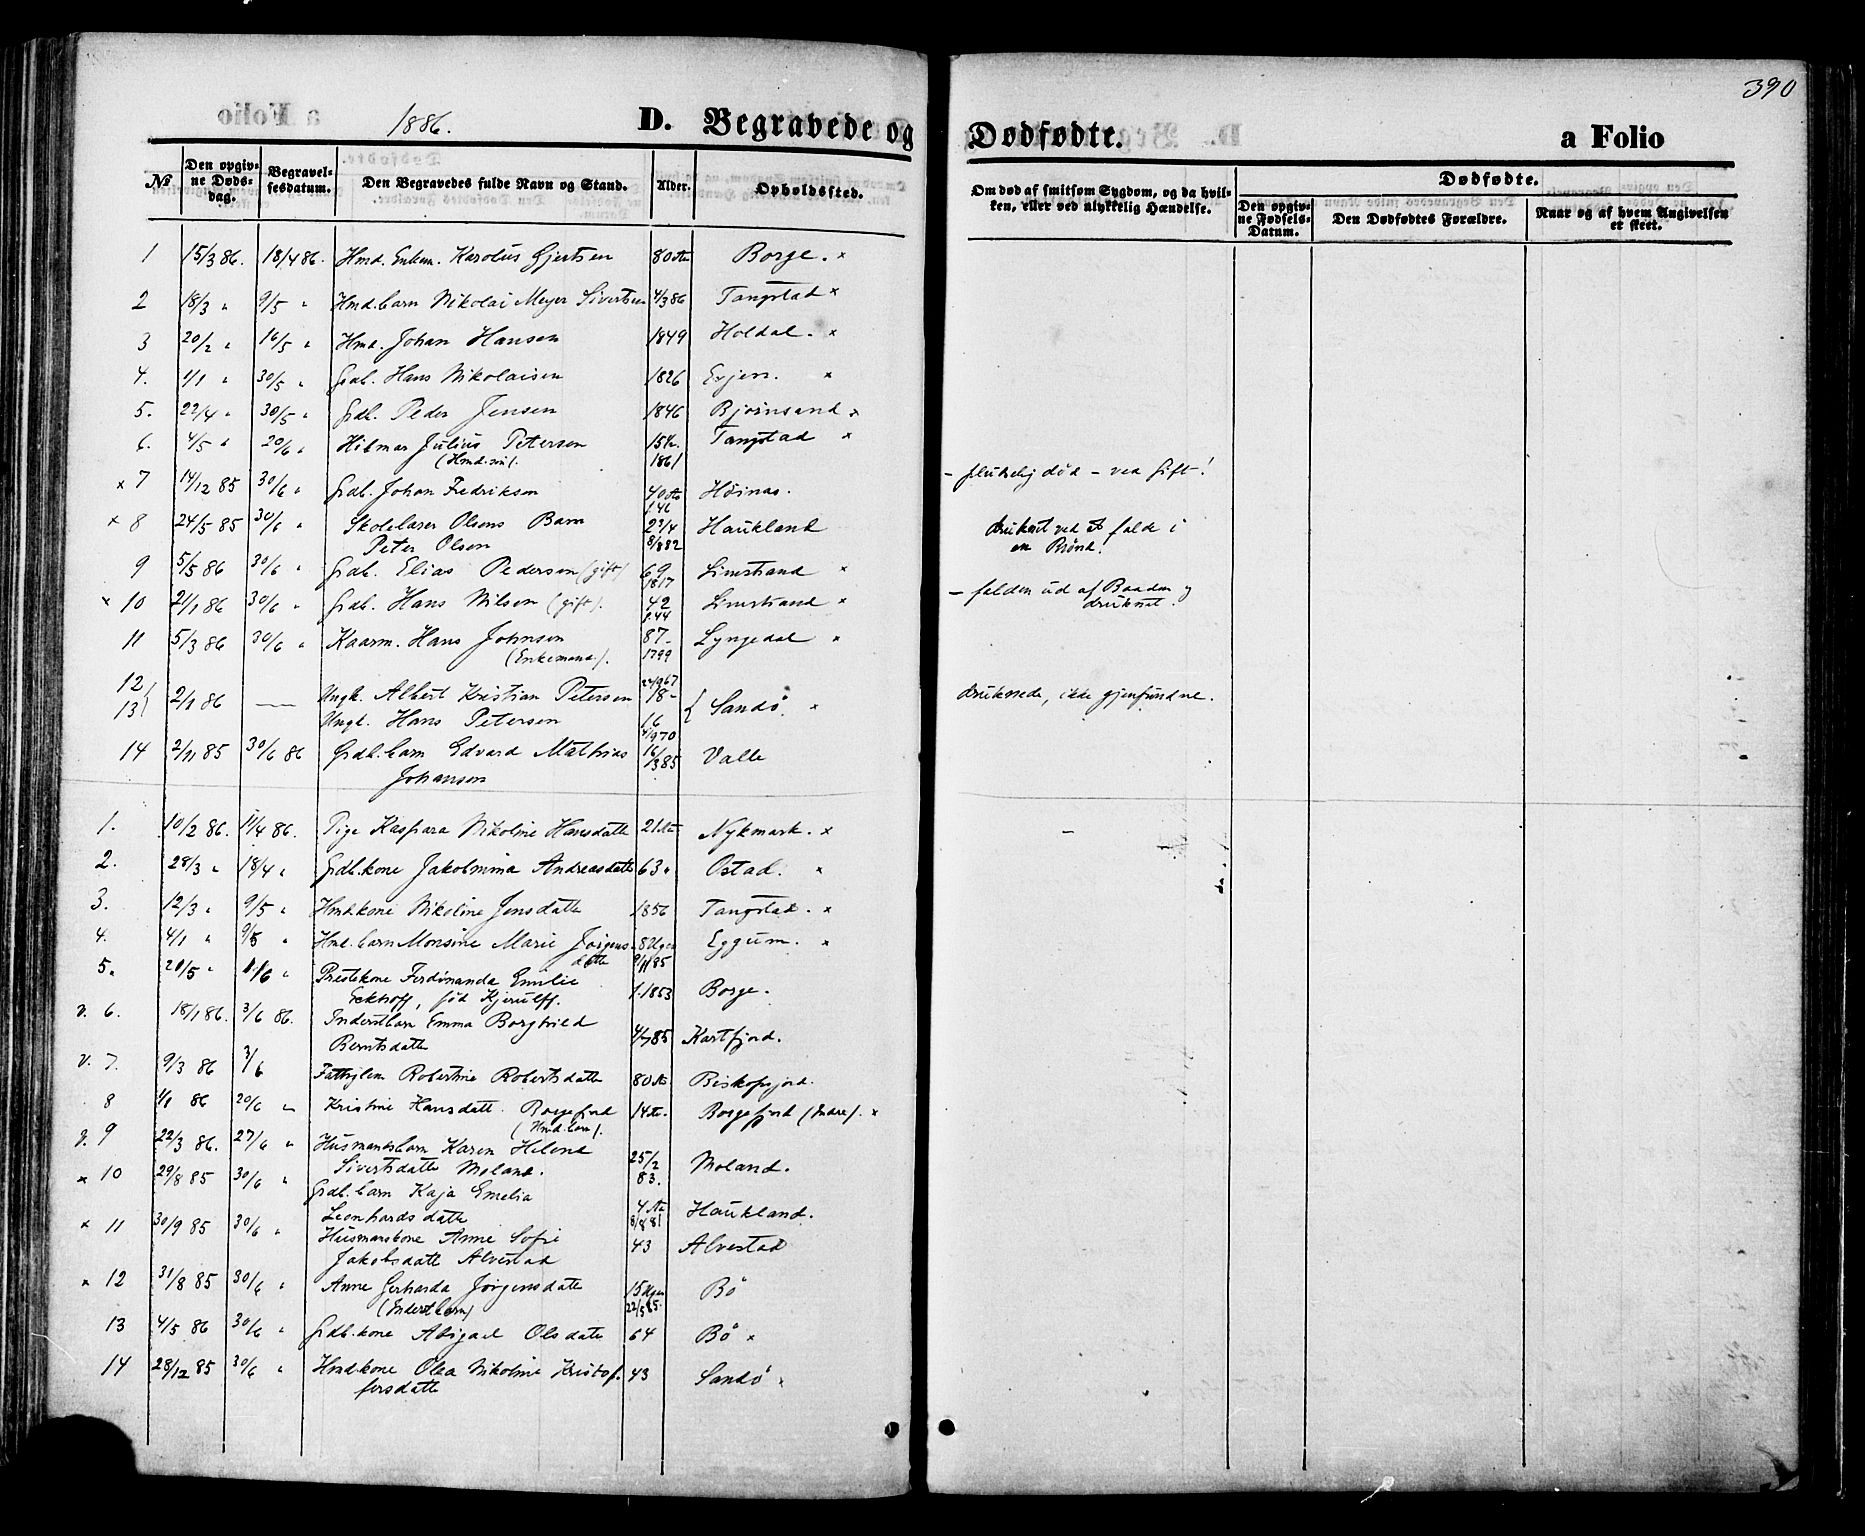 390
1886.
D. Begravede og Dødfødte. a Folio
№ Den opgivne Dødsdag. Begravelsesdatum. Den Begravedes fulde Navn og Stand. Alder. Opholdssted. Om død af smitsom Sygdom, og da hvilken, eller ved ulykkelig Hændelse. Dødfødte. Den opgivne Fødsels-Datum. Den Dødfødtes Forældre. Naar og af hvem Angivelsen er skeet.
1 15/3 86. 18/4 86. Hmd. Enkem. Karolus Gjertsen 80 Borge. ×
2 18/3 " 9/5 " Hmd.barn Nikolai Meyer Sivertsen 4/3 86 Tangstad ×
3 20/2 " 16/5 " Hmd. Johan Hansen 1849 Holdal. ×
4. 1/1 " 30/5 " Gdb. Hans Nikolaisen 1826 Evjen. ×
5. 22/4 " 30/5 " Gdb. Peder Jensen 1846 Bjørnsand ×
6. 4/5 " 20/6 " Hilmar Julius Petersen 15 Tangstad ×
(Hmd.søn). 1861
× 7 14/12 85 30/6 " Gdb. Johan Fredriksen 40 Høinas. – plutselig død – ved Gift!
f.46
× 8 24/5 85 30/6 " Skolelærer Olsens Barn 2 3/4 Haukland druknet ved at falde i
Peter Olsen 8/8 82 en Brønd.
9 5/5 86 30/6 " Gdb. Elias Pedersen (gift) 69 Limstrand ×
1817
× 10 21/1 86 30/6 " Gdb. Hans Nilsen (gift). 42 Limstrand × – falden ud af Baaden og
f.44 druknet.
11 5/3 86 30/6 " Kaarm. Hans Johnsen 87 – Lyngedal ×
(Enkemand). 1799
12 2/1 86 — Ungk. Albert Kristian Petersen 24/9 67 18 – Sandø. × druknede, ikke gjenfundne.
13 Ungk. Hans Petersen 16
4/9 70
14 2/11 85 30/6 86 Grdb.barn Edvard Mathias 16/3 85 Valle
Johansen
1. 10/2 86. 11/4 86. Pige Kaspara Nikoline Hansdatte 21 Nykmark. ×
2. 28/3 " 18/4 " Gdb.kone Jakobmina Andreasdatte 63 " Ostad. ×
3. 12/3 " 9/5 " Hmd.kone Nikoline Jensdatte 1856 Tangstad. ×
4. 4/1 " 9/5 " Hmd.barn Monsine Marie Jørgens- 8 Uger Eggum. ×
datte 9/11 85
5. 20/5 " 1/6 " Præstekone Ferdinanda Emilie
Eckhoff, fød Kjerulff. f. 1853 Borge.
v. 6. 18/1 86. 3/6 86. Inderstbarn Emma Borghild
Berntsdatte 4/7 85 Kartfjord.
v. 7. 9/3 86 3/6 Fattiglem Robertine Robertsdatte 80 Biskopsjord.
8 1/1 86 20/6 " Kristine Hansdatt. Borgefjord 14 Borgefjord (Indre). ×
(Hmd.barn).
v. 9 22/3 86. 27/6 " Husmandsbarn Karen Helene
Sivertsdatte Moland. 25/2 83. Moland.
× 10 29/8 85 30/6 " Grdb.barn Kaja Emelia
Leonhardsdatte 4 8/8 81 Haukland.
× 11 30/9 85 30/6 " Husmanskone Anne Sofie 43 Alvestad
Jakobsdatte Alvestad
× 12 31/8 85 30/6 " Anne Gerharda Jørgensdatte 15 Uger Bø
(Inderstbarn) 22/5 85.
13 4/5 86 30/6 " Gdb.kone Abigael Olsdatte 64 Bø ×
14 28/12 85 30/6 " Hmd.kone Olea Nikoline Kristof- 43 Sandø ×
fersdatte